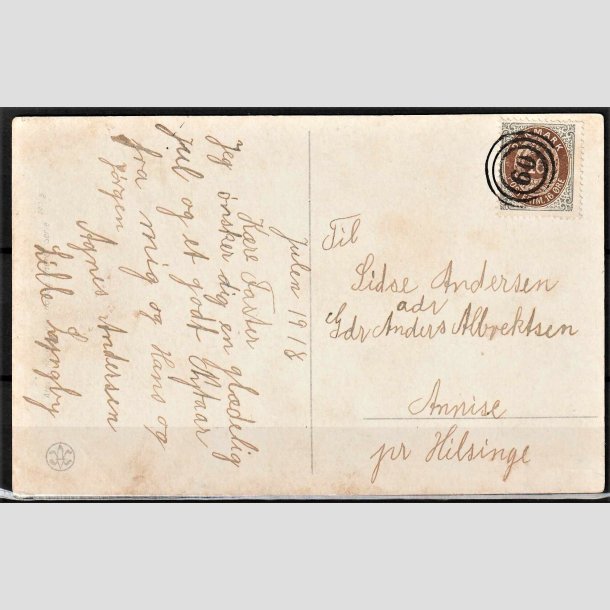 Julen 1918
Kære Faster
Jeg ønsker dig en glædelig
jul og et godt Nytaar
fra mig og Hans og
Jørgen
Agnes Andersen
Lille Lyngby
DANMARK
POSTFRIM. 16 ØRE
60
Til
Sidse Andersen
adr
Gdr Anders Albrektsen
Annise
pr Hilsinge